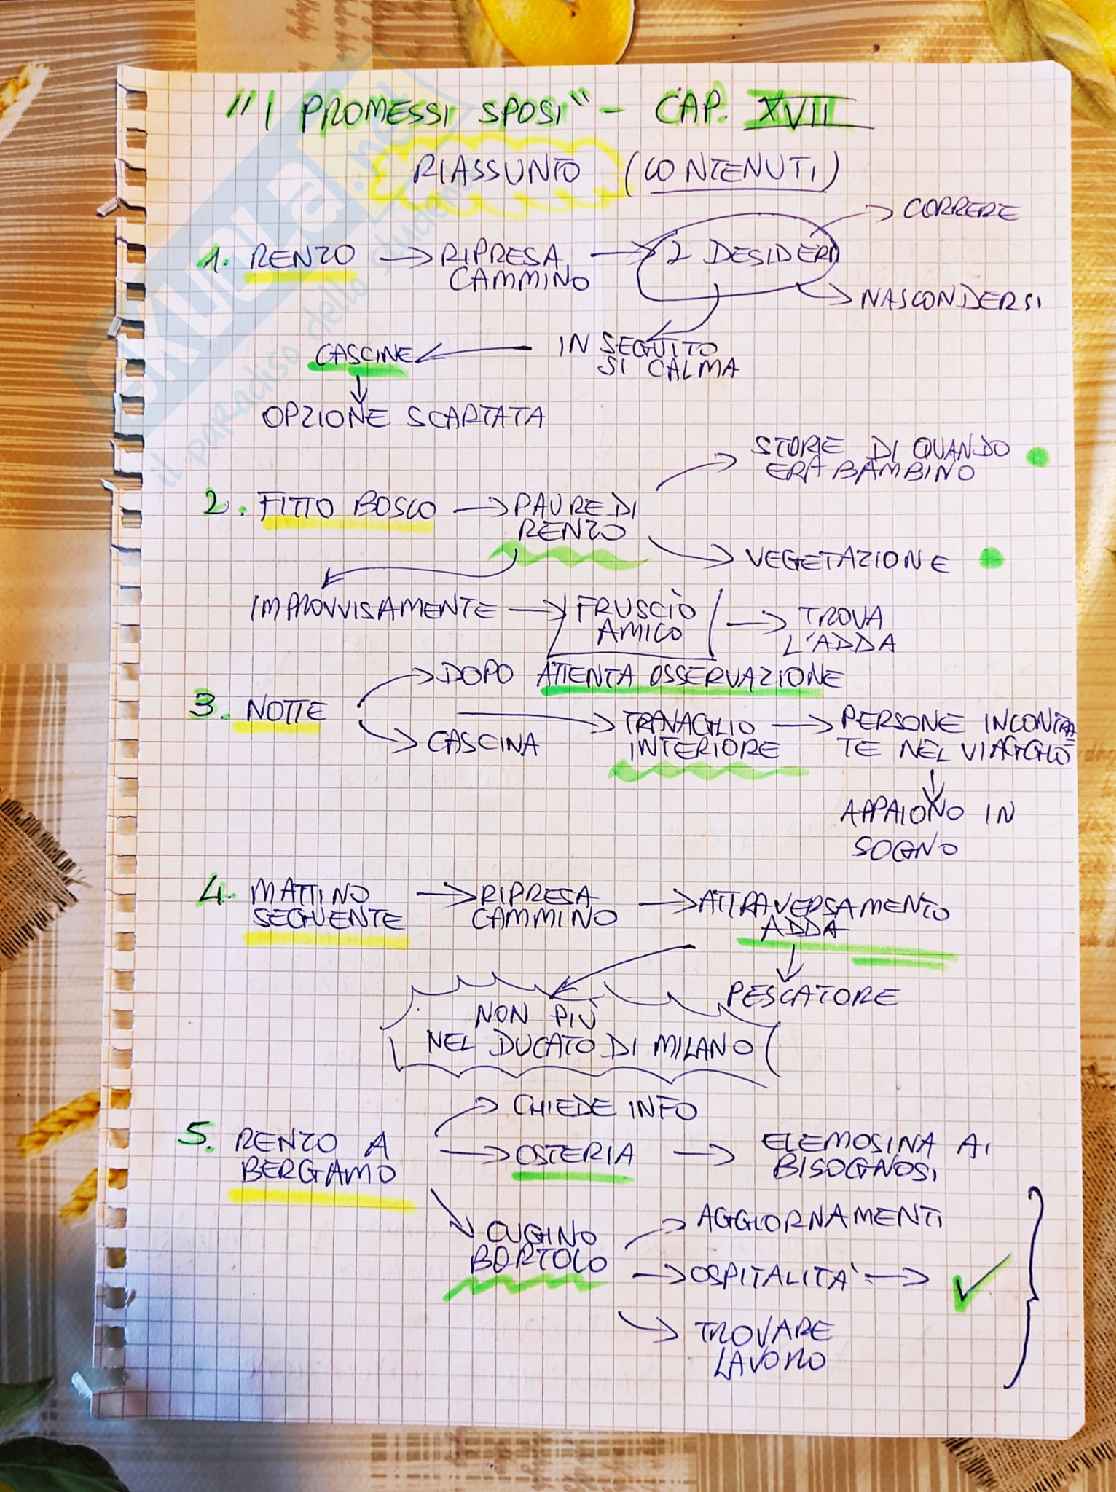 "I PROMESSI SPOSI" - CAP. XVII
RIASSUNTO (CONTENUTI)
1. RENZO → RIPRESA CAMMINO → 2 DESIDERI
→ CORRERE
→ NASCONDERSI
IN SEGUITO
SI CALMA
CASCINE
OPZIONE SCARTATA
2. FITTO BOSCO → PAURE DI
RENZO
STORIE DI QUANDO
ERA BAMBINO
VEGETAZIONE
IMPROVVISAMENTE → FRUSCIO
AMICO
→ TROVA
L'ADDA
3. NOTTE
DOPO ATTENTA OSSERVAZIONE
CASCINA
→ TRAVAGLIO
INTERIORE
→ PERSONE INCONTRA
TE NEL VIAGGIO
APPAIONO IN
SOGNO
4. MATTINO
SEGUENTE
→ RIPRESA
CAMMINO
→ ATTRAVERSAMENTO
ADDA
PESCATORE
NON PIÙ
NEL DUCATO DI MILANO
5. RENZO A
BERGAMO
→ CHIEDE INFO
→ OSTERIA → ELEMOSINA AI
BISOGNOSI
CUGINO
BORTOLO
→ AGGIORNAMENTI
→ OSPITALITA' → ✓
→ TROVARE
LAVORO
SKUOLA.net
il paradiso dello studente